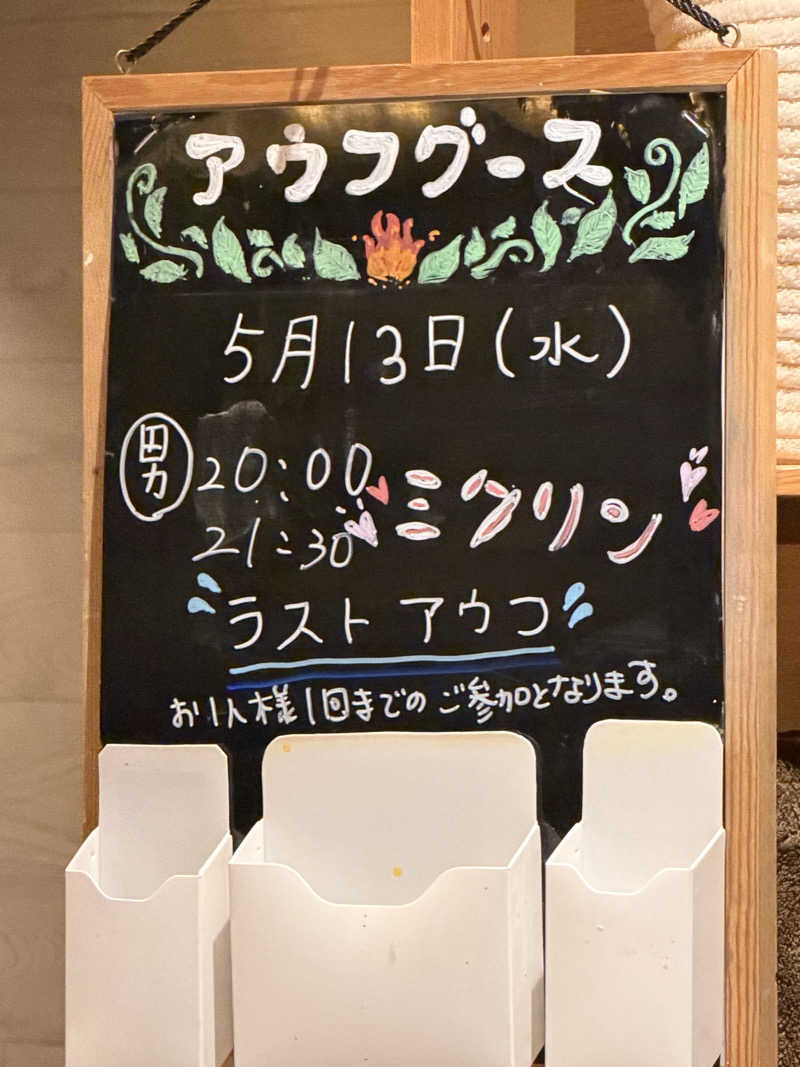 アウフグース
5月13日(水)
男 20:00
21:30
ミクリン
ラスト アウフ
お1人様1回までのご参加となります。